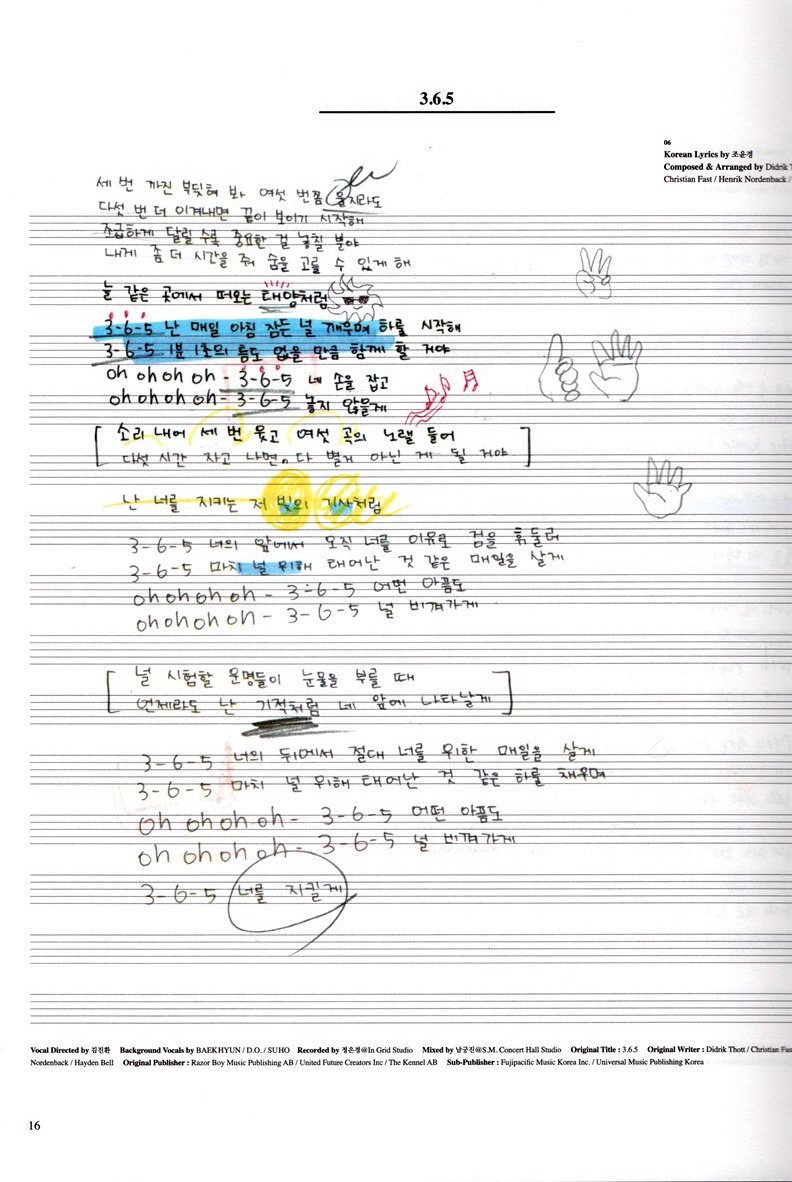 3.6.5
06
Korean Lyrics by 조윤경
Composed & Arranged by Didrik T
Christian Fast / Henrik Nordenback /
세 번 까진 부딪혀 봐 여섯 번쯤 울지라도
다섯 번 더 이겨내면 끝이 보이기 시작해
조급하게 달릴 수록 중요한 걸 놓칠 뿐야
내게 좀 더 시간을 줘 숨을 고를 수 있게 해
늘 같은 곳에서 떠오는 태양처럼
3-6-5 난 매일 아침 잠든 널 깨우며 하루를 시작해
3-6-5 1분 1초의 틈도 없을 만큼 함께 할 거야
oh oh oh oh - 3-6-5 네 손을 잡고
oh oh oh oh - 3-6-5 놓지 않을게
[ 소리 내어 세 번 웃고 여섯 곡의 노랠 들어
다섯 시간 자고 나면 다 별거 아닌 게 될 거야 ]
난 너를 지키는 저 빛의 기사처럼
3-6-5 너의 앞에서 오직 너를 이유로 검을 휘둘러
3-6-5 마치 널 위해 태어난 것 같은 매일을 살게
oh oh oh oh - 3-6-5 어떤 아픔도
oh oh oh oh - 3-6-5 널 비껴가게
[ 널 시험할 운명들이 눈물을 부를 때
언제라도 난 기적처럼 네 앞에 나타날게 ]
3-6-5 너의 뒤에서 절대 너를 위한 매일을 살게
3-6-5 마치 널 위해 태어난 것 같은 하루를 채우며
oh oh oh oh - 3-6-5 어떤 아픔도
oh oh oh oh - 3-6-5 널 비껴가게
3-6-5 너를 지킬게
Vocal Directed by 김진환 Background Vocals by BAEKHYUN / D.O. / SUHO Recorded by 정은경@In Grid Studio Mixed by 남궁진@S.M. Concert Hall Studio Original Title : 3.6.5 Original Writer : Didrik Thott / Christian Fas
Nordenback / Hayden Bell Original Publisher : Razor Boy Music Publishing AB / United Future Creators Inc / The Kennel AB Sub-Publisher : Fujipacific Music Korea Inc. / Universal Music Publishing Korea
16